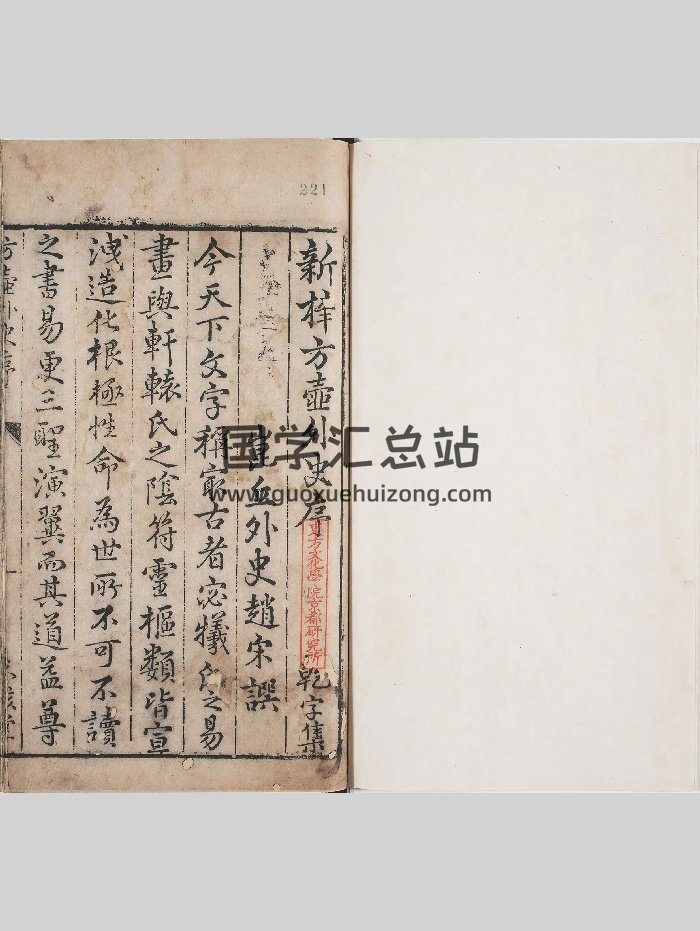 221
新榟方壺外史序
乾字集
東方文化學院京都研究所
外史趙宋譔
今天下文字稱寂古者宓犧氏之易
畫與軒轅氏之陰符靈樞類皆宣
洩造化根極性命為世所不可不讀
之書易更三聖演翼而其道益尊
方壺外史序
一
国学汇总站
www.guoxuehuizong.com